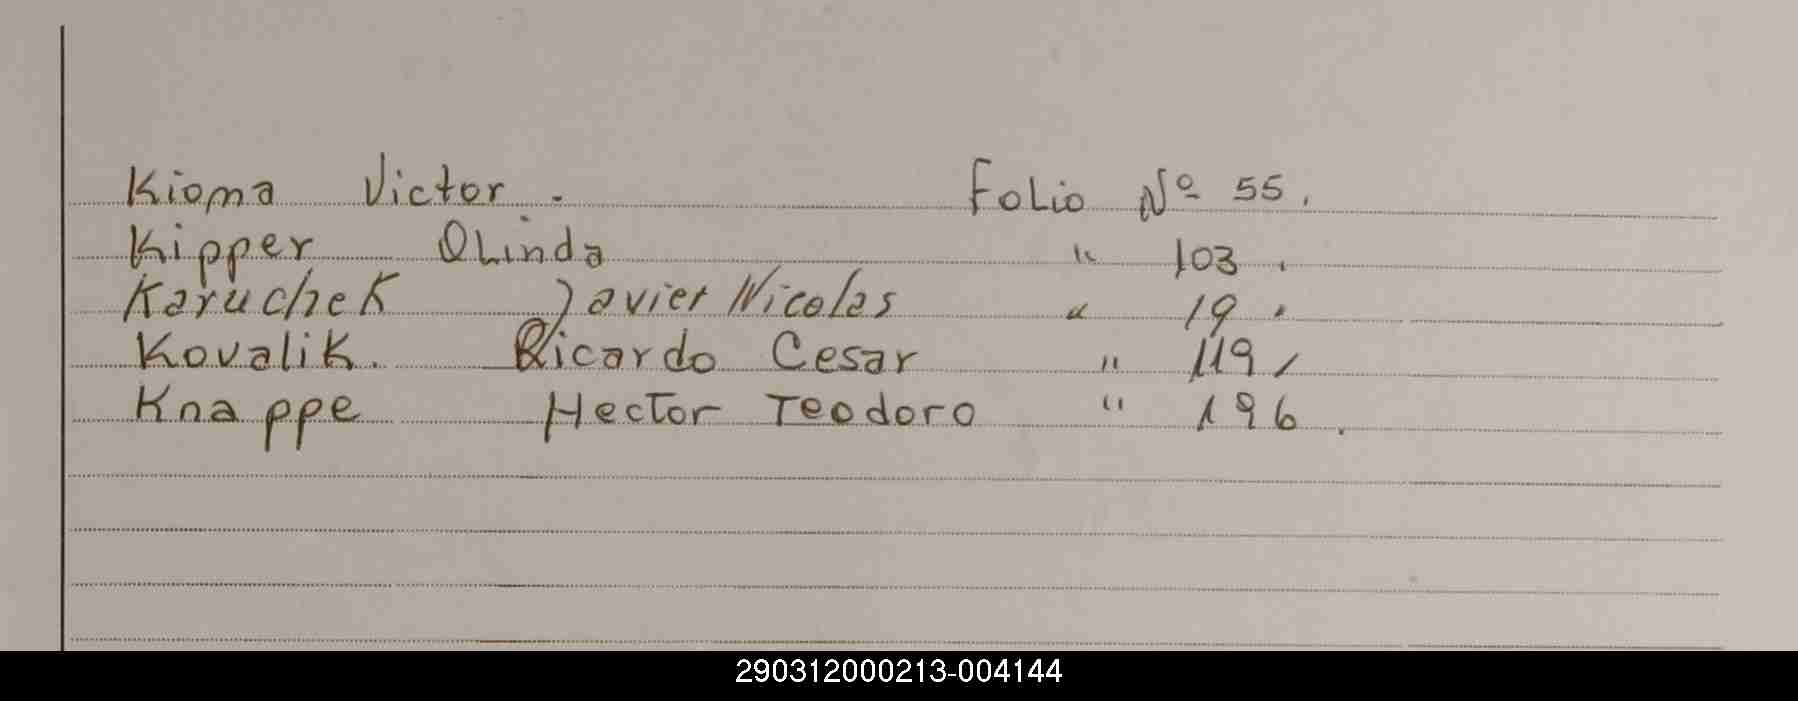 Kioma Victor. Folio Nº 55.
Kipper Olinda " 103.
Karuchek Javier Nicolas " 19.
Kovalik. Ricardo Cesar " 119,
Knappe Hector Teodoro " 196.
290312000213-004144